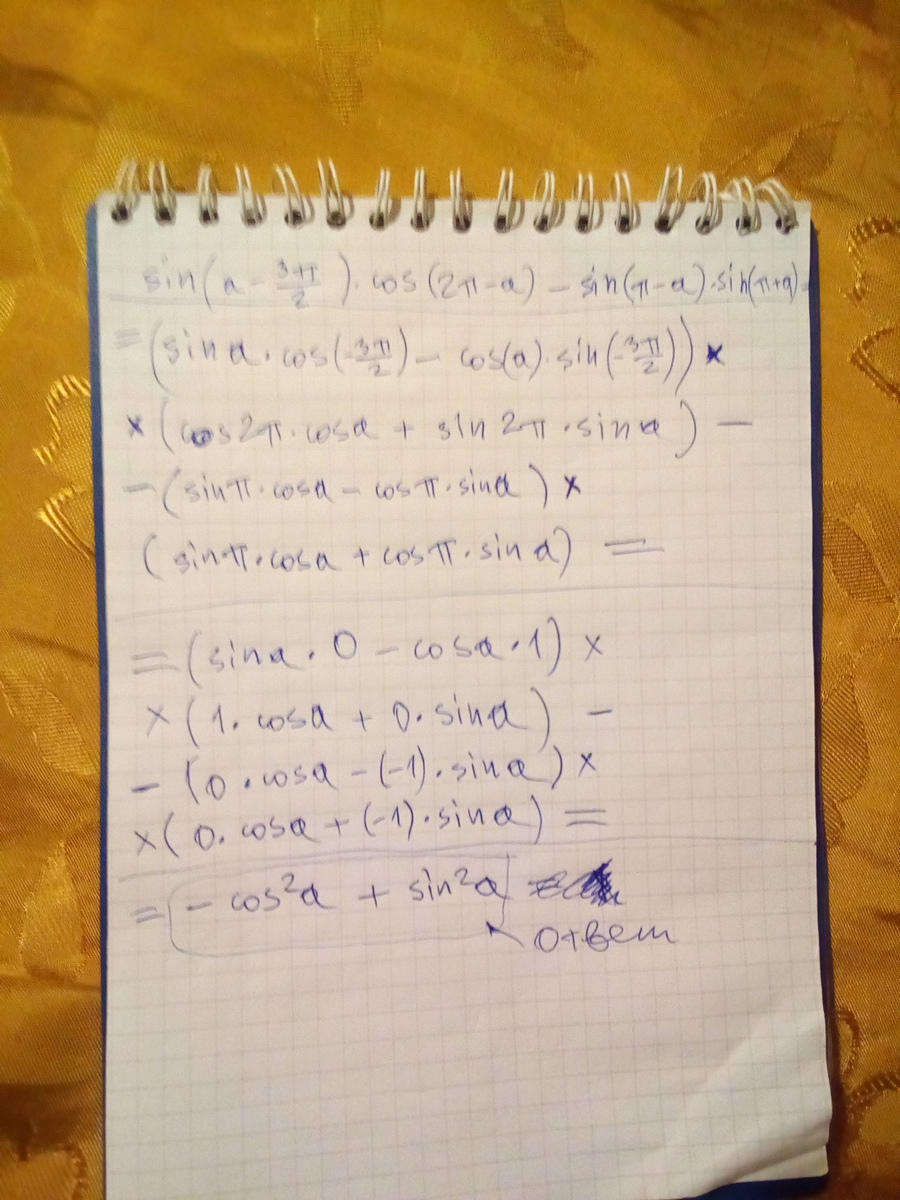 sin(a - 3π/2) · cos(2π-a) - sin(π-a)·sin(π+a)=
=(sin a · cos(-3π/2) - cos(a)·sin(-3π/2)) ×
×(cos2π·cosa + sin 2π·sina) -
-(sinπ·cosa - cosπ·sina) ×
(sinπ·cosa + cosπ·sina) =
=(sina · 0 - cosa·1) ×
×(1·cosa + 0·sina) -
-(0·cosa -(-1)·sina)×
×(0·cosa +(-1)·sina) =
= - cos²a + sin²a
ответ